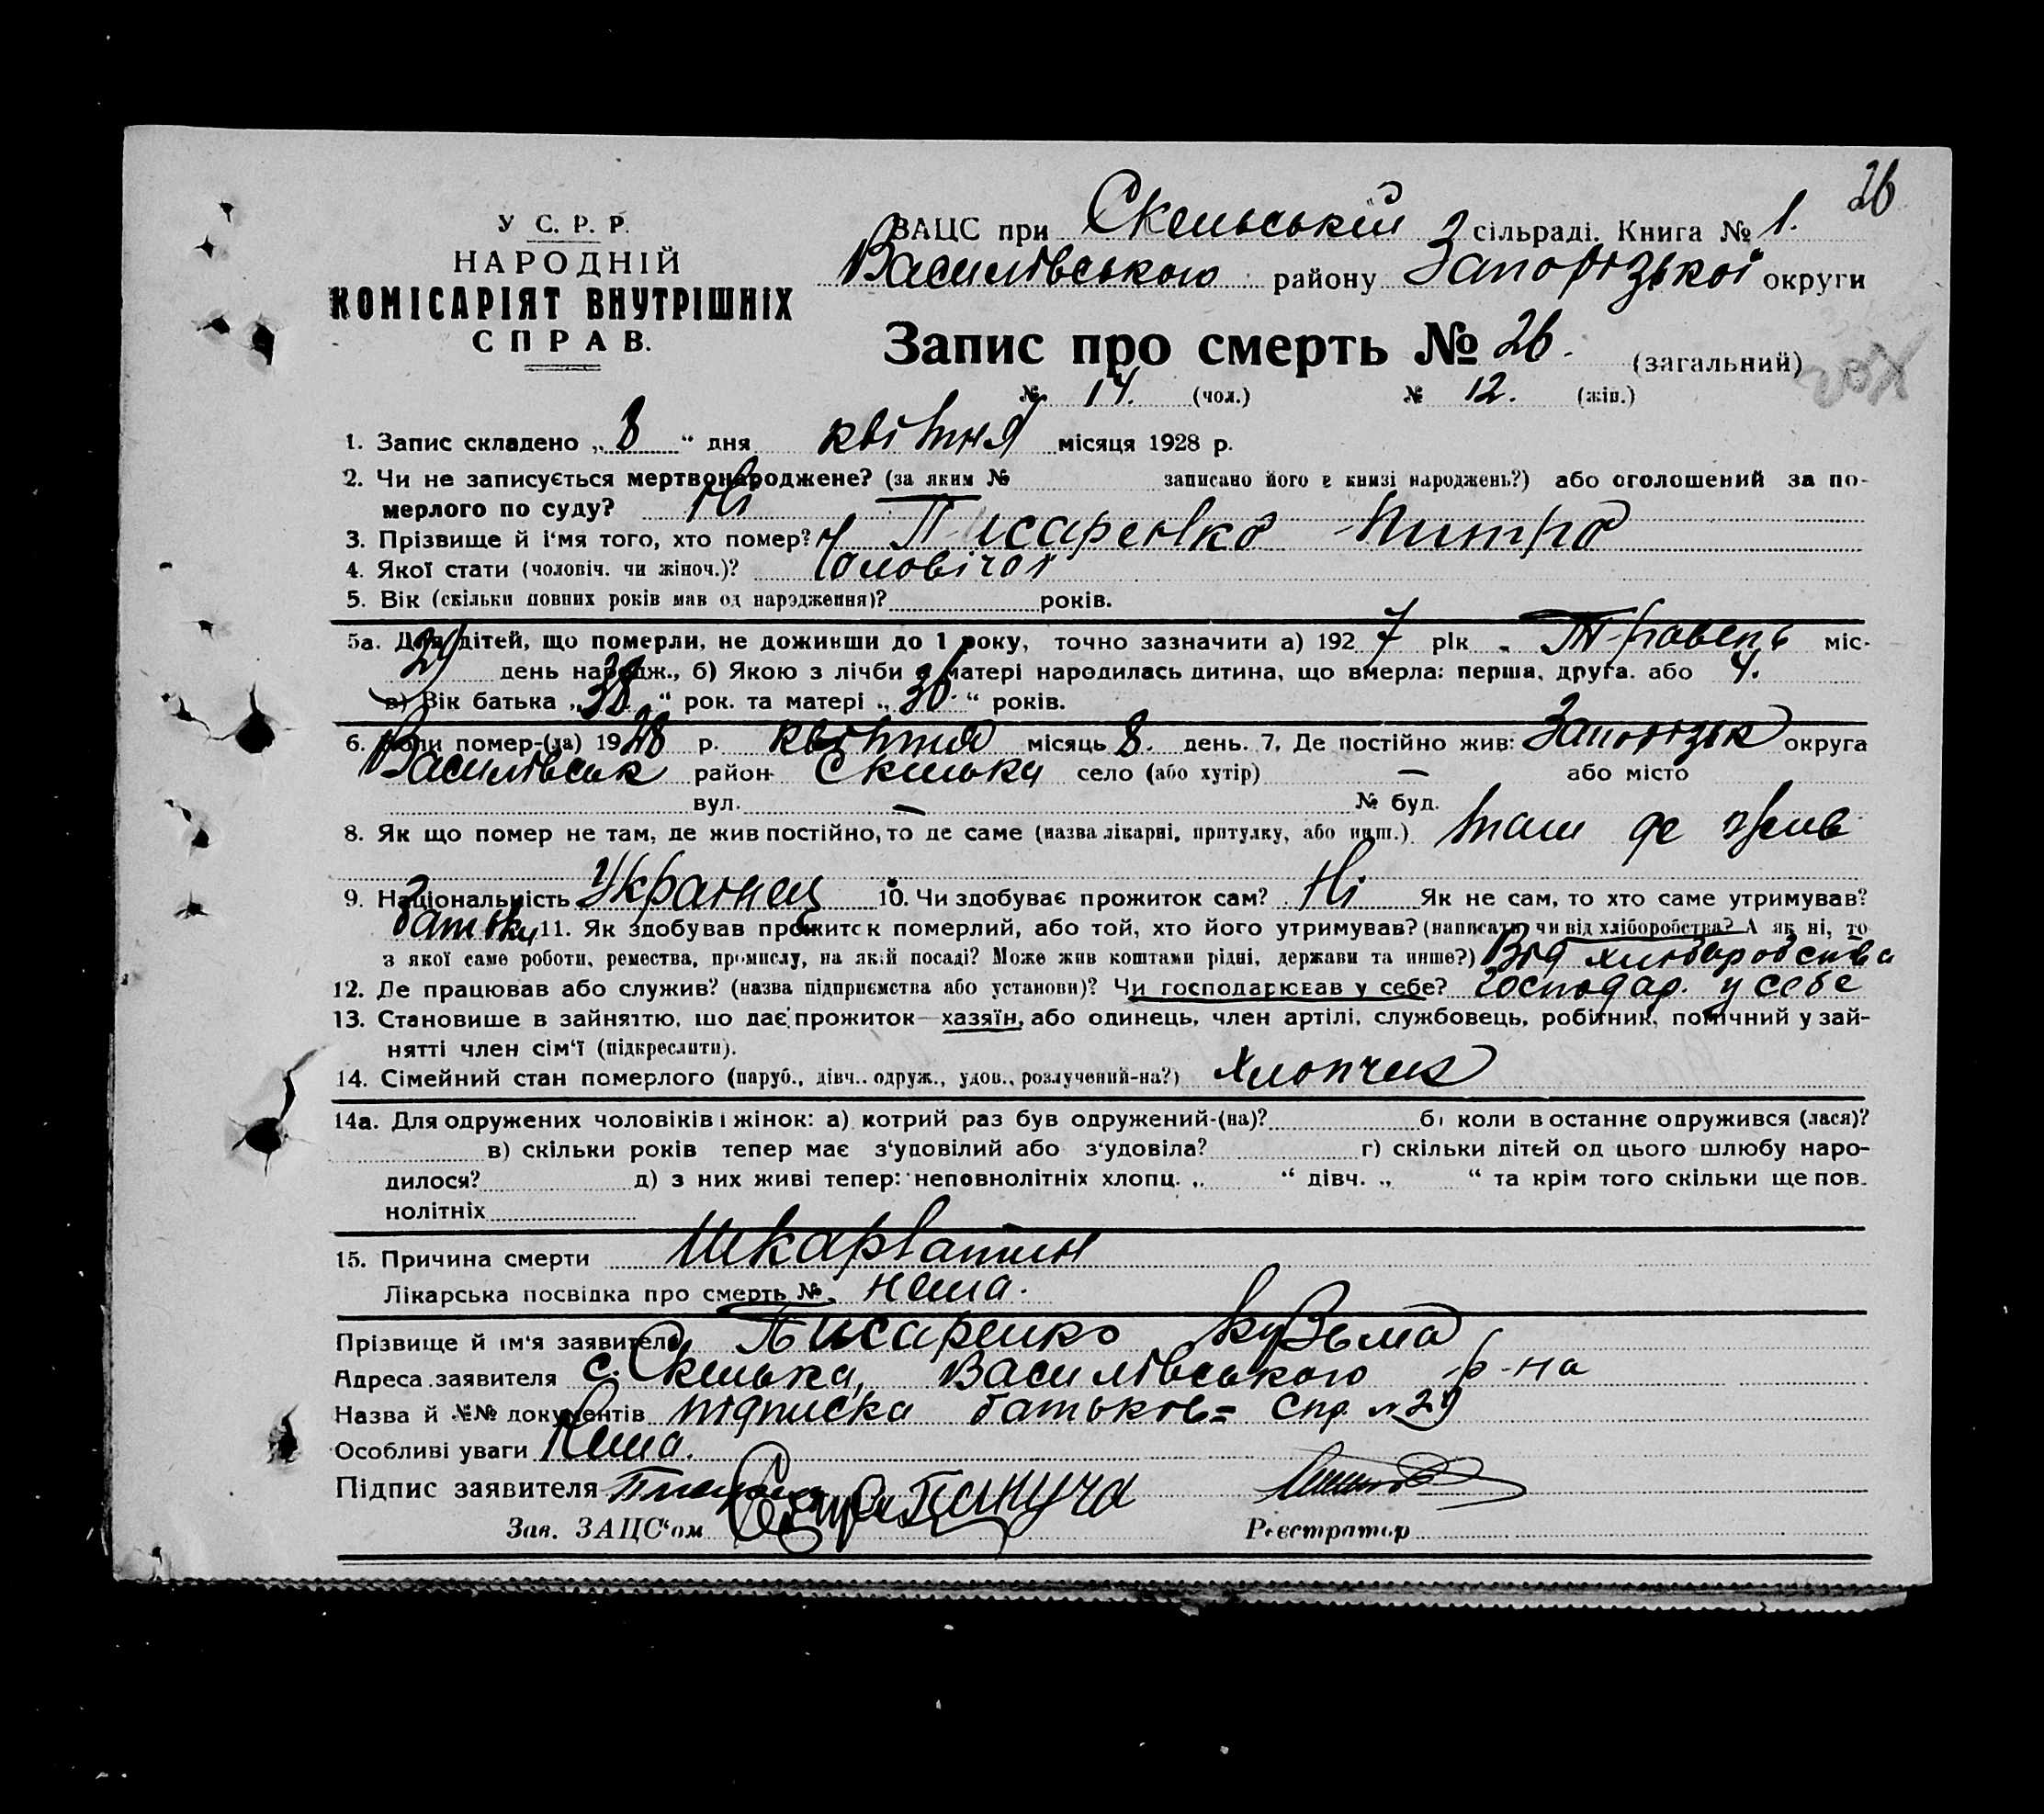 26
У С. Р. Р.
НАРОДНІЙ
КОМІСАРІЯТ ВНУТРІШНІХ
СПРАВ.
ЗАЦС при Скельській сільраді. Книга № 1.
Василівського району Запорізької округи
Запис про смерть № 26. (загальний)
№ 14. (чол.) № 12. (жін.)
1. Запис складено „8“ дня квітня місяця 1928 р.
2. Чи не записується мертвонароджене? (за яким № записано його в книзі народжень?) або оголошений за по-
мерлого по суду? Ні
3. Прізвище й і‘мя того, хто помер? Писаренко
4. Якої стати (чоловіч. чи жіноч.)? Чоловічої
5. Вік (скільки повних років мав од народження)? років.
5а. Для дітей, що померли, не доживши до 1 року, точно зазначити а) 1927 рік Травень міс-
29 день народж., б) Якою з лічби в матері народилась дитина, що вмерла: перша, друга, або 4.
в) Вік батька „38“ рок. та матері „30“ років.
6. Коли помер-(ла) 1928 р. квітня місяць 8. день. 7. Де постійно жив: Запорізьк округа
Василівськ район Скелька село (або хутір) — або місто
вул. — № буд.
8. Як що помер не там, де жив постійно, то де саме (назва лікарні, притулку, або инш.) там де жив
9. Національність Українец 10. Чи здобуває прожиток сам? Ні Як не сам, то хто саме утримував?
батьки 11. Як здобував прожиток померлий, або той, хто його утримував? (написати чи від хліборобства? А як ні, то
з якої саме роботи, ремества, промислу, на якій посаді? Може жив коштами рідні, держави та инше?) Від хліборобства
12. Де працював або служив? (назва підприємства або установи)? Чи господарював у себе? господар. у себе
13. Становище в зайняттю, що дає прожиток—хазяїн, або одинець, член артілі, службовець, робітник, помічний у зай-
нятті член сім‘ї (підкреслити).
14. Сімейний стан померлого (паруб., дівч.. одруж., удов., розлучений-на?) Хлопчик
14а. Для одружених чоловіків і жінок: а) котрий раз був одружений-(на)? б) коли в останнє одружився (лася)?
в) скільки років тепер має з‘удовілий або з‘удовіла? г) скільки дітей од цього шлюбу наро-
дилося? д) з них живі тепер: неповнолітніх хлопц. „ “ дівч. „ “ та крім того скільки ще пов.
нолітніх
15. Причина смерти Шкарлатин
Лікарська посвідка про смерть № нема.
Прізвище й ім‘я заявителя Писаренко Кузьма
Адреса заявителя с. Скелька, Василівського р-на
Назва й №№ документів підписка батьков= спр. № 29
Особливі уваги Нема.
Підпис заявителя
Зав. ЗАЦС‘ом
Реєстратор